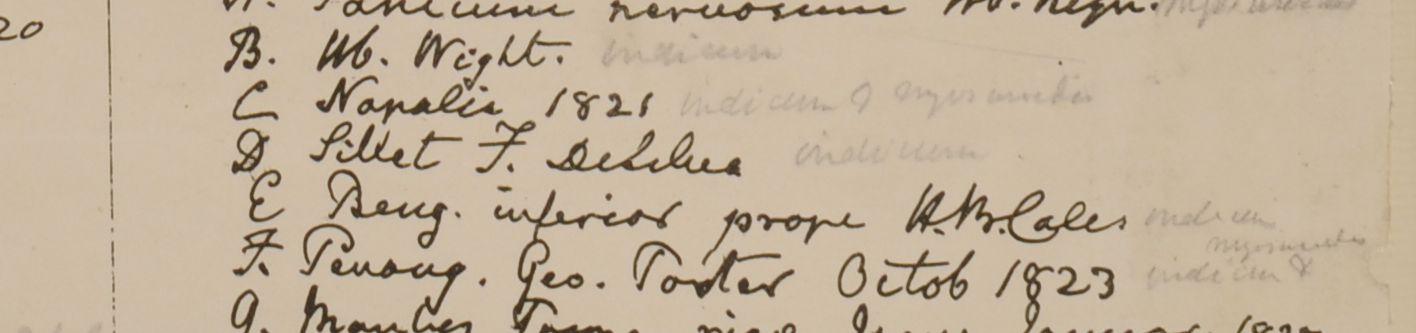 Panicum nervosum Hb. Heyn.
20
B. Hb. Wight. indicum
C Napalia 1821 indicum & myosuroides
D Sillet F. DeSilva indicum
E Beng. inferior prope H.B. Calc. indicum
F. Penang. Geo. Porter Octob 1823 indicum & myosuroides
G.